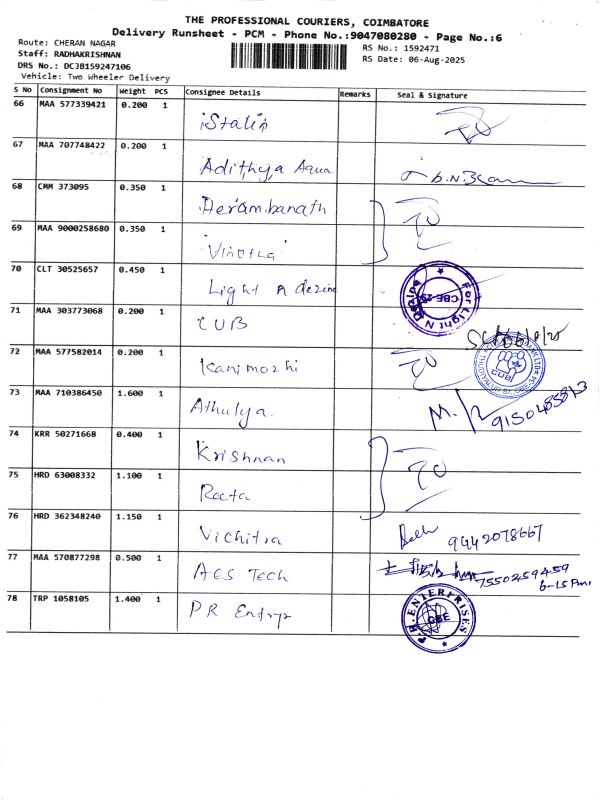 THE PROFESSIONAL COURIERS, COIMBATORE
Delivery Runsheet - PCM - Phone No.:9047080280 - Page No.:6
Route: CHERAN NAGAR
RS No.: 1592471
Staff: RADHAKRISHNAN
RS Date: 06-Aug-2025
DRS No.: DCJB159247106
Vehicle: Two Wheeler Delivery
S No Consignment No Weight PCS Consignee Details Remarks Seal & Signature
66 MAA 577339421 0.200 1 Stalin
67 MAA 707748422 0.200 1 Adithya Aqua
68 CMM 373095 0.350 1 Herambanath
69 MAA 9000258680 0.350 1 Vinotha
70 CLT 30525657 0.450 1 Light n dezine
For Light N D CBE-25
71 MAA 303773068 0.200 1 CUB
72 MAA 577582014 0.200 1 Kanimozhi
CUB
73 MAA 710386450 1.600 1 Athulya. 9150485873
74 KRR 50271668 0.400 1 Krishnan
75 HRD 63008332 1.100 1 Reeta
76 HRD 362348240 1.150 1 Vichitra 9442078667
77 MAA 570877298 0.500 1 AES Tech 7550259459
6-15 Pm
78 TRP 1058105 1.400 1 PR Entrp
P.R. ENTERPRISES CBE